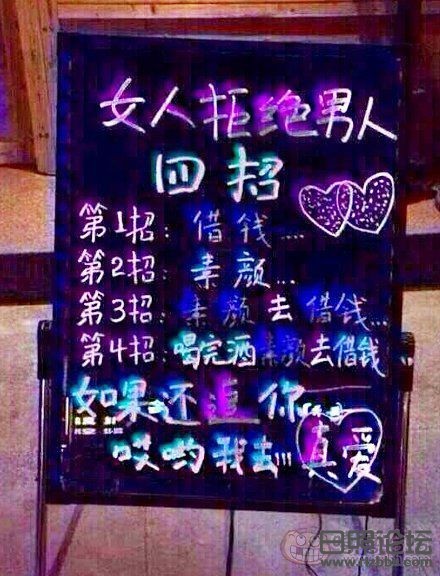 女人拒绝男人
四招
第1招:借钱....
第2招:素颜...
第3招:素颜去借钱...
第4招:喝完酒素颜去借钱
如果还追你......
哎哟我去!!!真爱